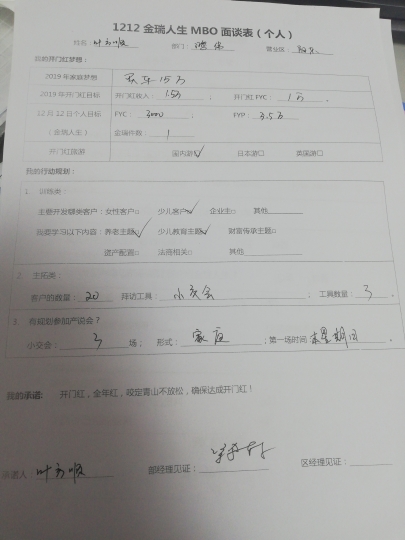 1212 金瑞人生 MBO 面谈表（个人）
姓名： 部门： 营业区：
我的开门红梦想：
2019 年家庭梦想 买车15万
2019 年开门红目标 开门红收入：1.5万 ，开门红 FYC：1万 。
12 月 12 日个人目标 FYC：3000 FYP：3.5万
（金瑞人生） 金瑞件数：1
开门红旅游 国内游√ 日本游□ 英国游□
我的行动规划：
1. 训练类：
主要开发额类客户：女性客户□ 少儿客户√ 企业主□ 其他
我要学习以下内容：养老主题√ 少儿教育主题√ 财富传承主题□
资产配置□ 法商相关□ 其他
2. 主拓类：
客户的数量：20 拜访工具：小交会 ；工具数量：3 。
3. 有规划参加产说会？
小交会：3 场； 形式：家庭 ；第一场时间 本星期日
我的承诺： 开门红，全年红，咬定青山不放松，确保达成开门红！
承诺人： 部经理见证： 区经理见证：